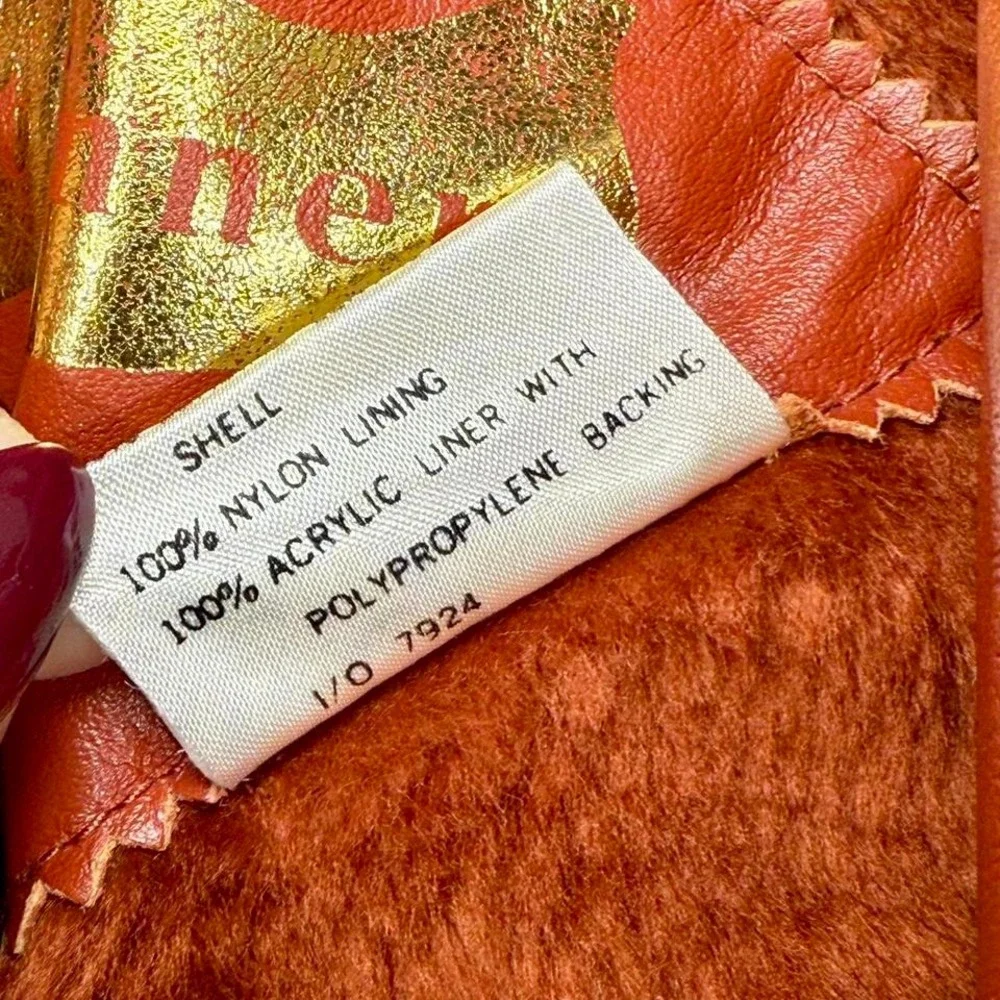 nner
SHELL
100% NYLON LINING
100% ACRYLIC LINER WITH
POLYPROPYLENE BACKING
I/O 7924